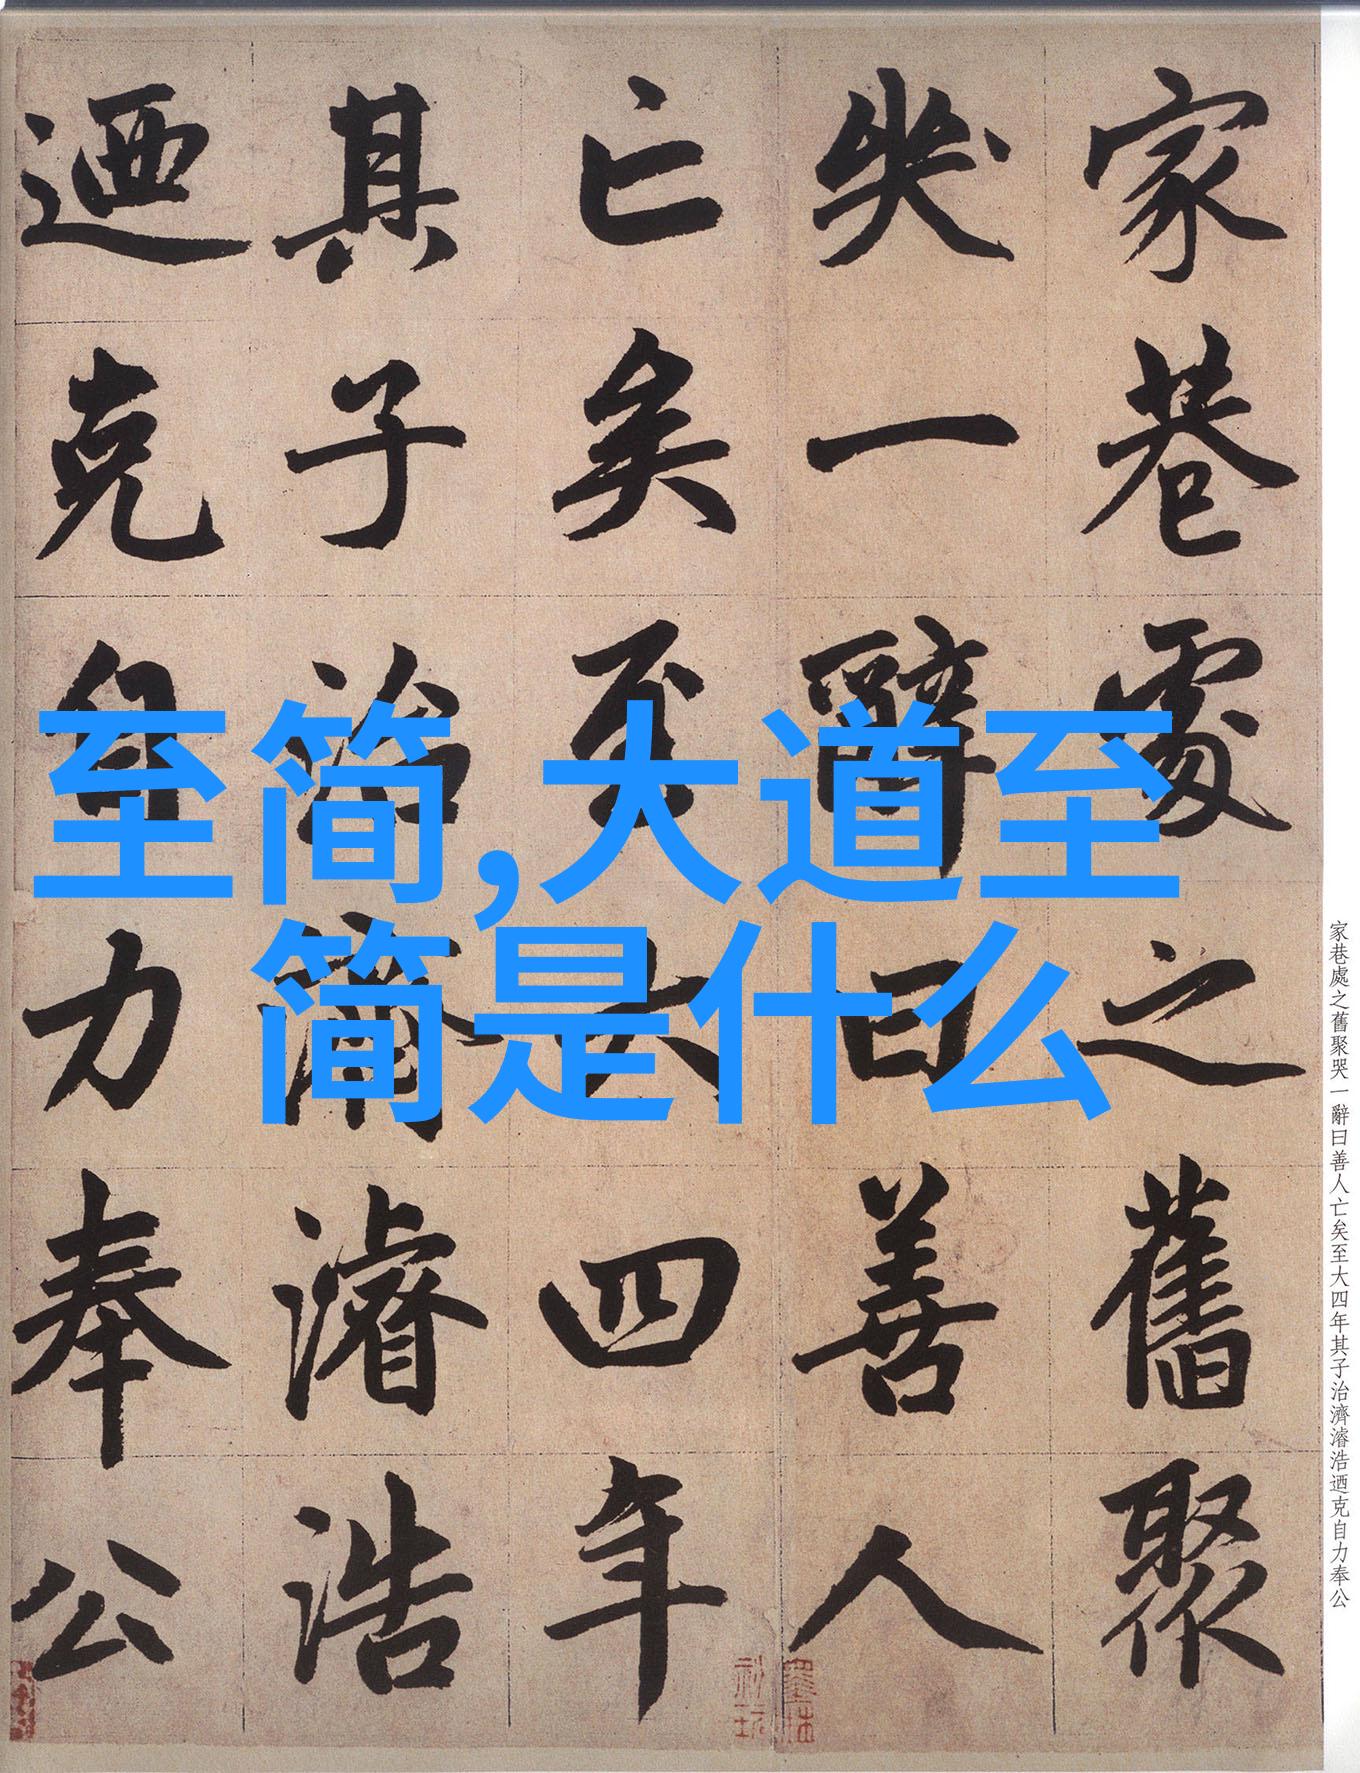 至简,大道至
简是什么
家巷處之舊聚
哭一辭曰善人
亡矣至大四年
其子治濟濬浩
迺克自力奉公
家巷處之舊聚哭一辭曰善人亡矣至大四年其子治濟濬浩迺克自力奉公